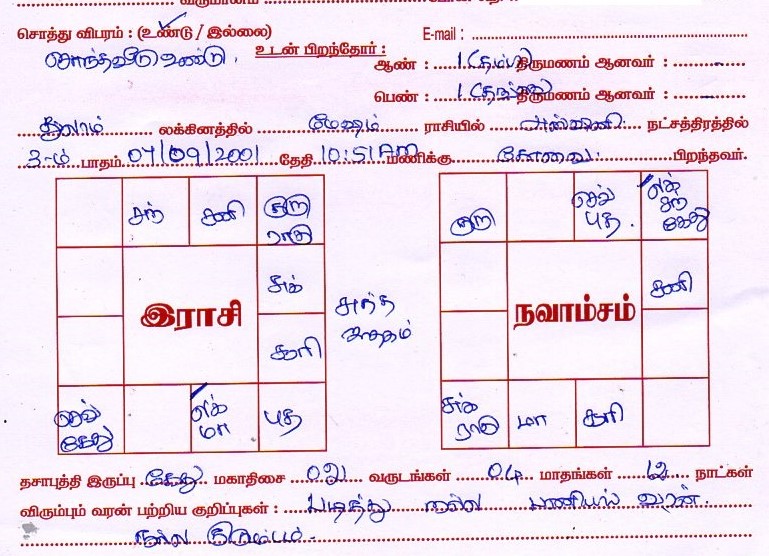 சொத்து விபரம் : (உண்டு / இல்லை) E-mail :
சொந்தவீடு உண்டு. உடன் பிறந்தோர் :
ஆண் : 1 (தம்பி) திருமணம் ஆனவர் :
பெண் : 1 (தங்கை) திருமணம் ஆனவர் :
துலாம் லக்கினத்தில் மேஷம் ராசியில் அஸ்வினி நட்சத்திரத்தில்
3-ம் பாதம் 07/09/2001 தேதி 10:51 AM மணிக்கு கோவை பிறந்தவர்.
சந் சனி குரு
ராகு
சுக்
சூரி
இராசி
செவ்
கேது
லக்
மா
புத
குரு செவ்
புத. லக்
சந்
கேது
சனி
நவாம்சம்
சுக்
ராகு
மா சூரி
தசாபுத்தி இருப்பு கேது மகாதிசை வருடங்கள் மாதங்கள் நாட்கள்
விரும்பும் வரன் பற்றிய குறிப்புகள் : படித்து நல்ல பணியில் வரன்.
நல்ல குடும்பம்.